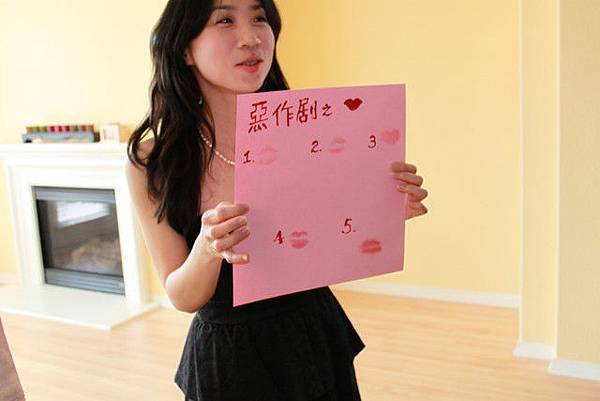 惡作剧之
1. 2. 3
4 5.